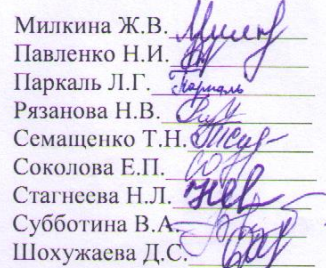 Милкина Ж.В.
Павленко Н.И.
Паркаль Л.Г. Паркаль
Рязанова Н.В.
Семащенко Т.Н.
Соколова Е.П.
Стагнеева Н.Л.
Субботина В.А.
Шохужаева Д.С.